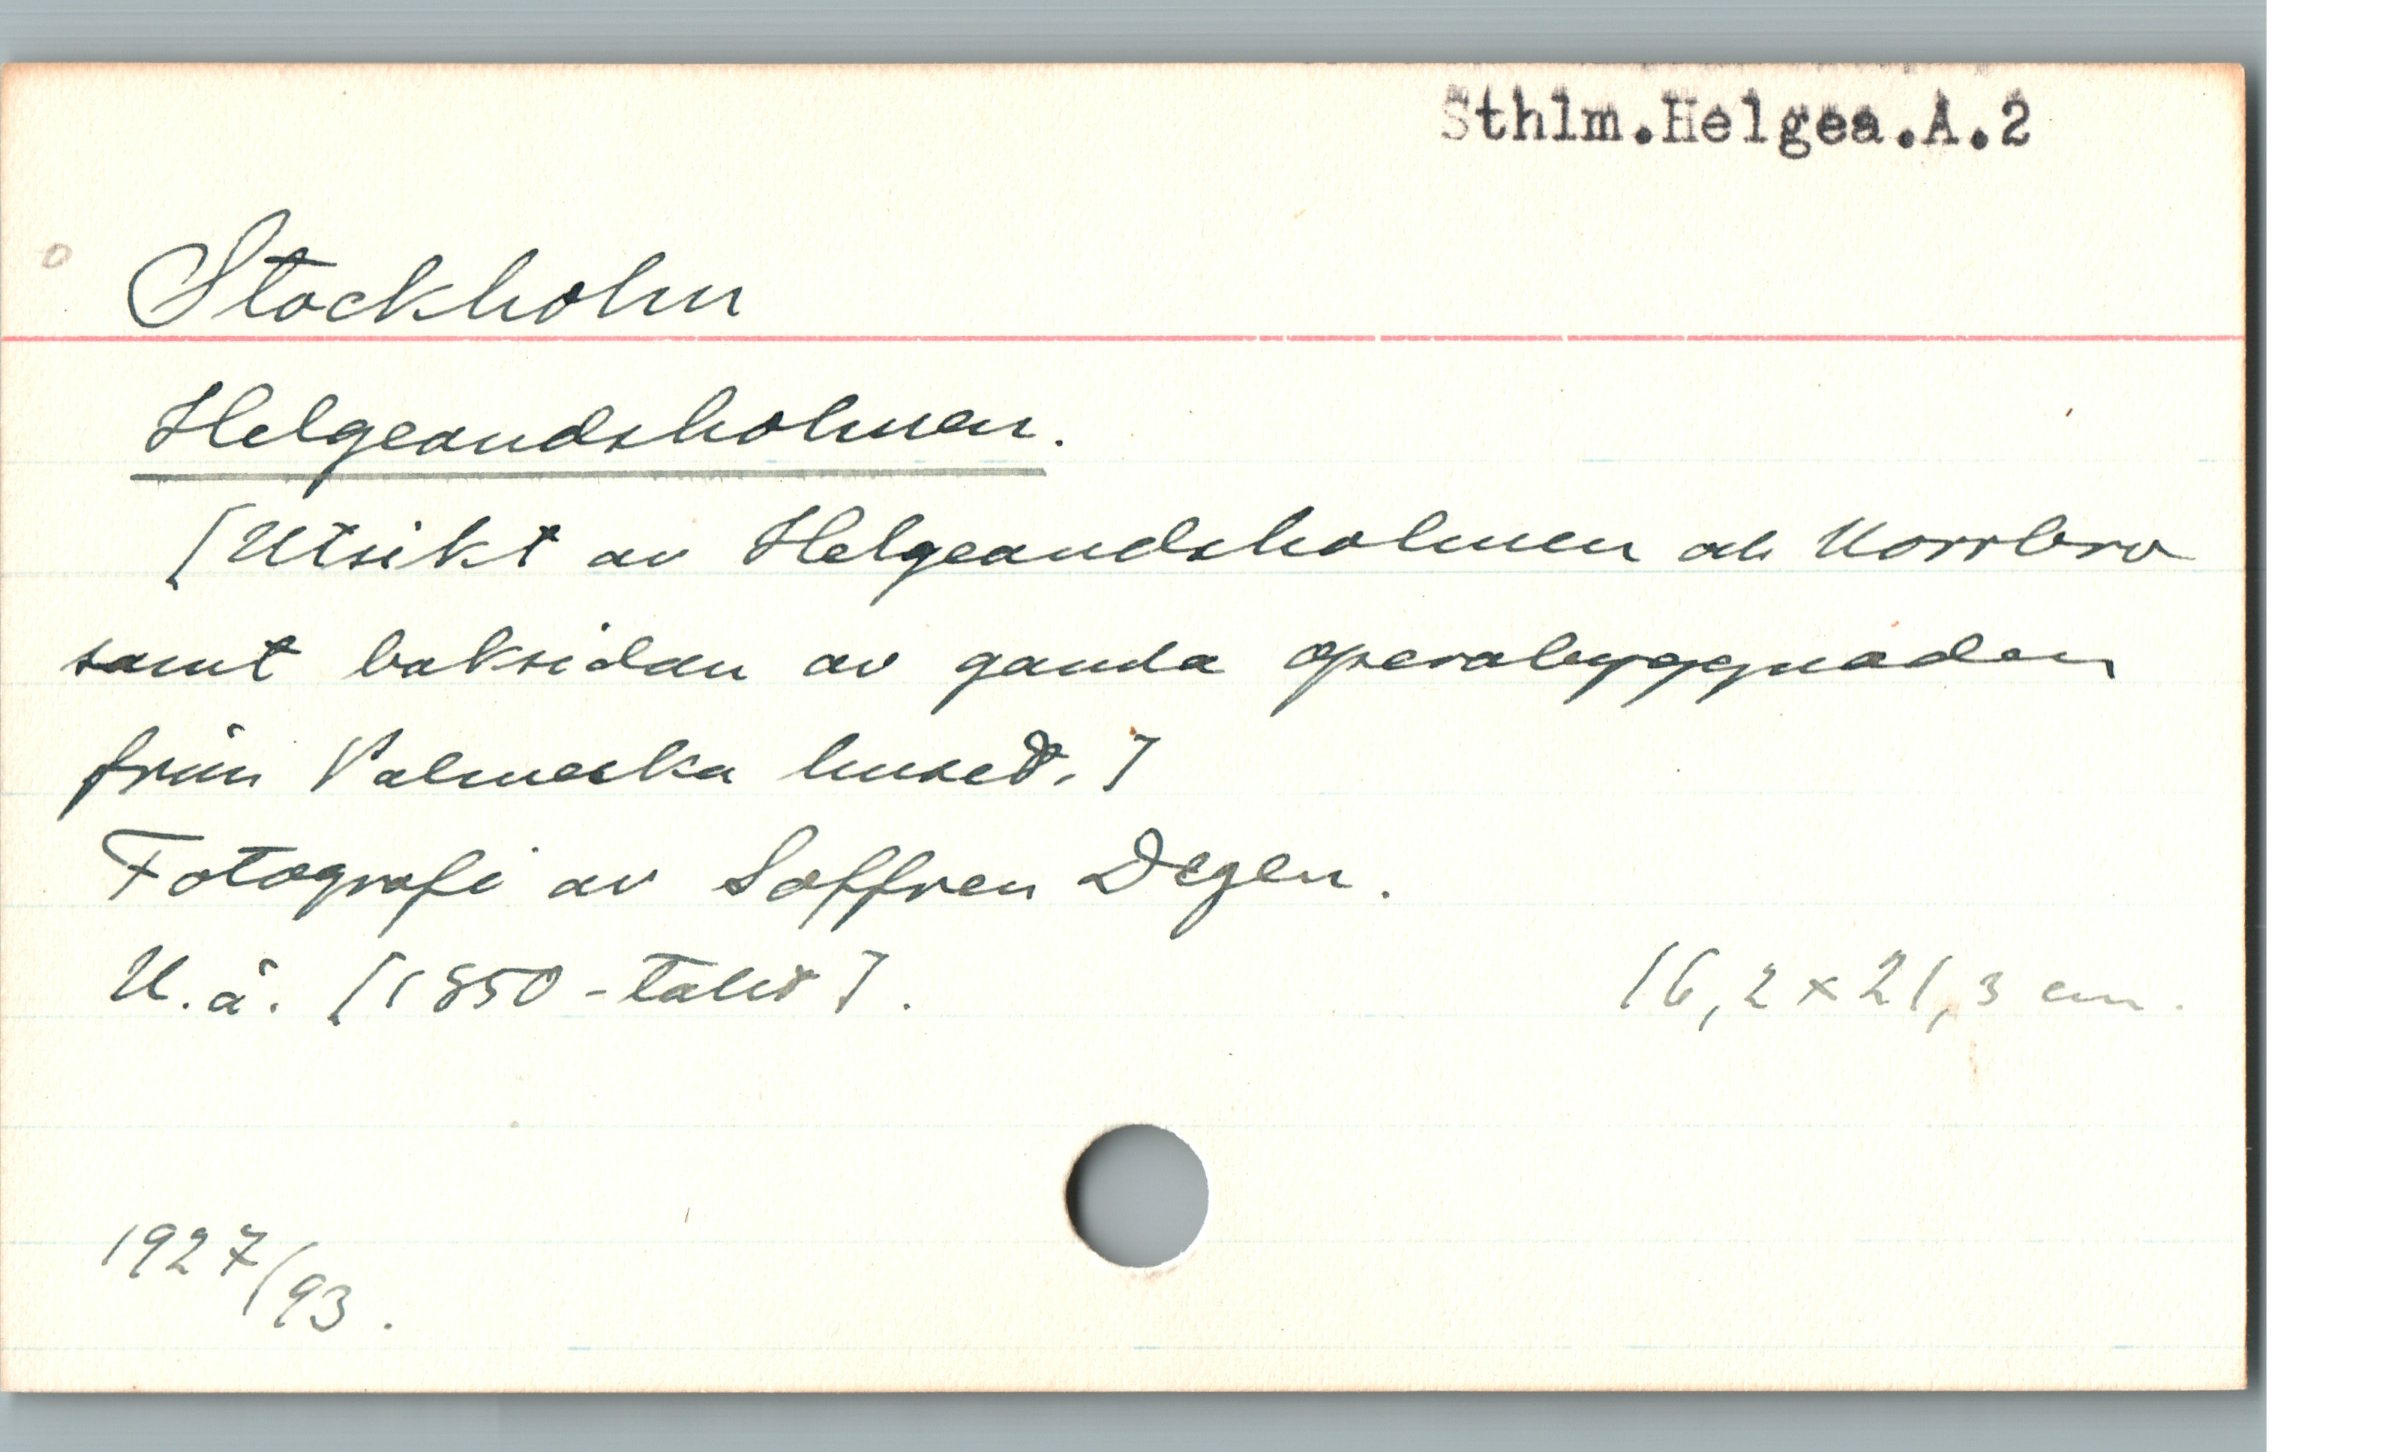 Sthlm.Helgea.A.2
Stockholm
Helgeandsholmen.
[Utsikt av Helgeandsholmen och Norrbro
samt baksidan av gamla operabyggnaden
från Palmeska huset.]
Fotografi av Soffren Degen.
U.å. [1850-talet].
16,2 x 21,3 cm.
1927/93.